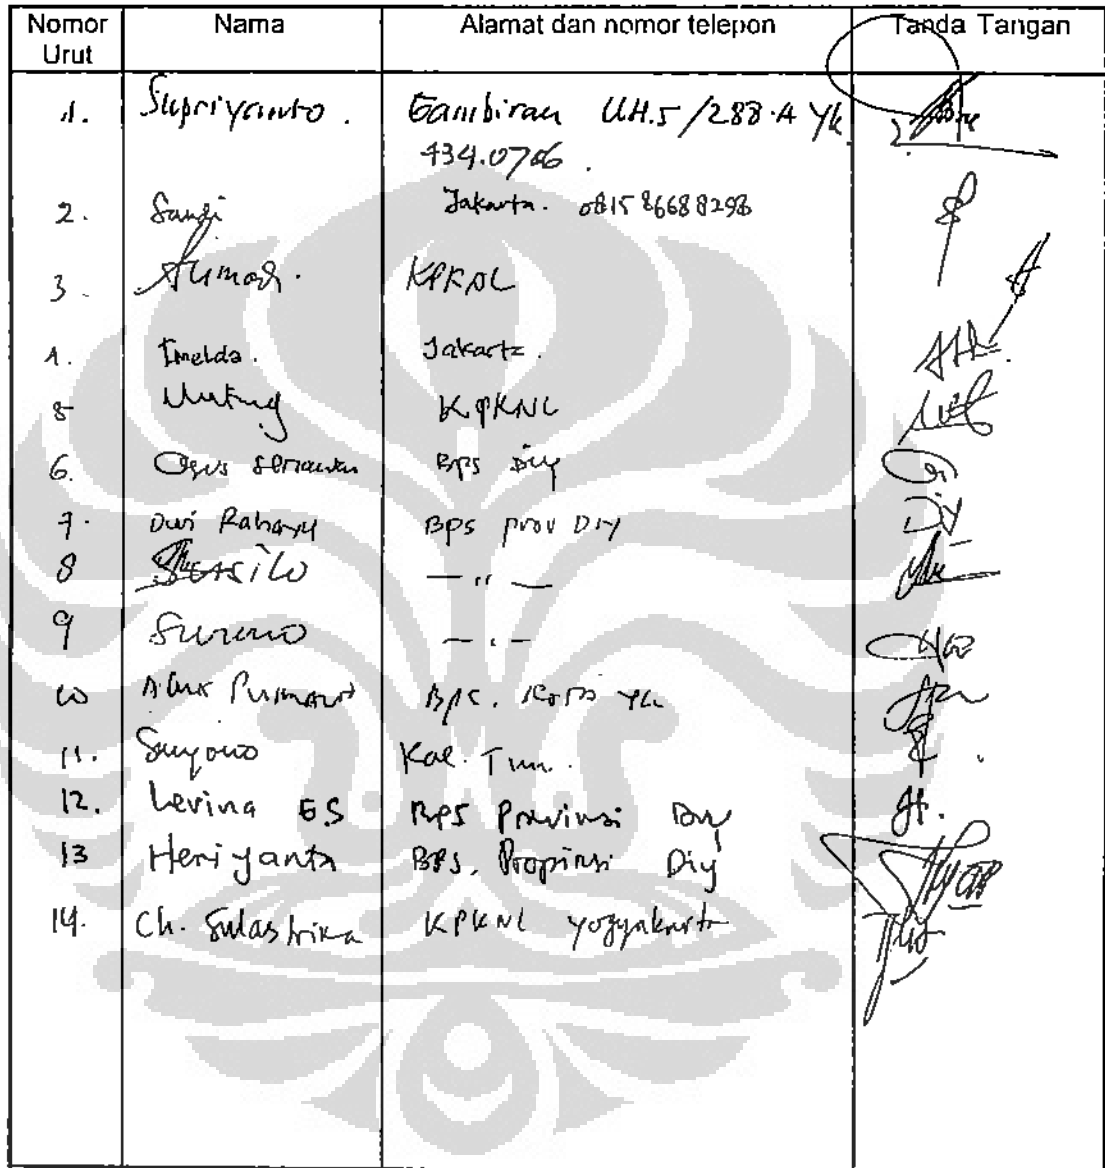 Nomor Urut Nama Alamat dan nomor telepon Tanda Tangan
1. Supriyanto. Gambiran UH.5/288.A Yk
434.0706.
2. Sandi Jakarta. 081586688298
3. KPKNL
4. Imelda. Jakarta.
5 Untung KPKNL
6. Agus Setiawan BPS DIY
7. Dwi Rahayu BPS prov DIY
8 Susilo — " —
9 Sureno — " —
10 BPS. Kota Yk
11. Suyono Kal. Tim.
12. Levina ES BPS Provinsi DIY
13 Heriyanta BPS. Propinsi Diy
14. Ch. Sulastrina KPKNL Yogyakarta